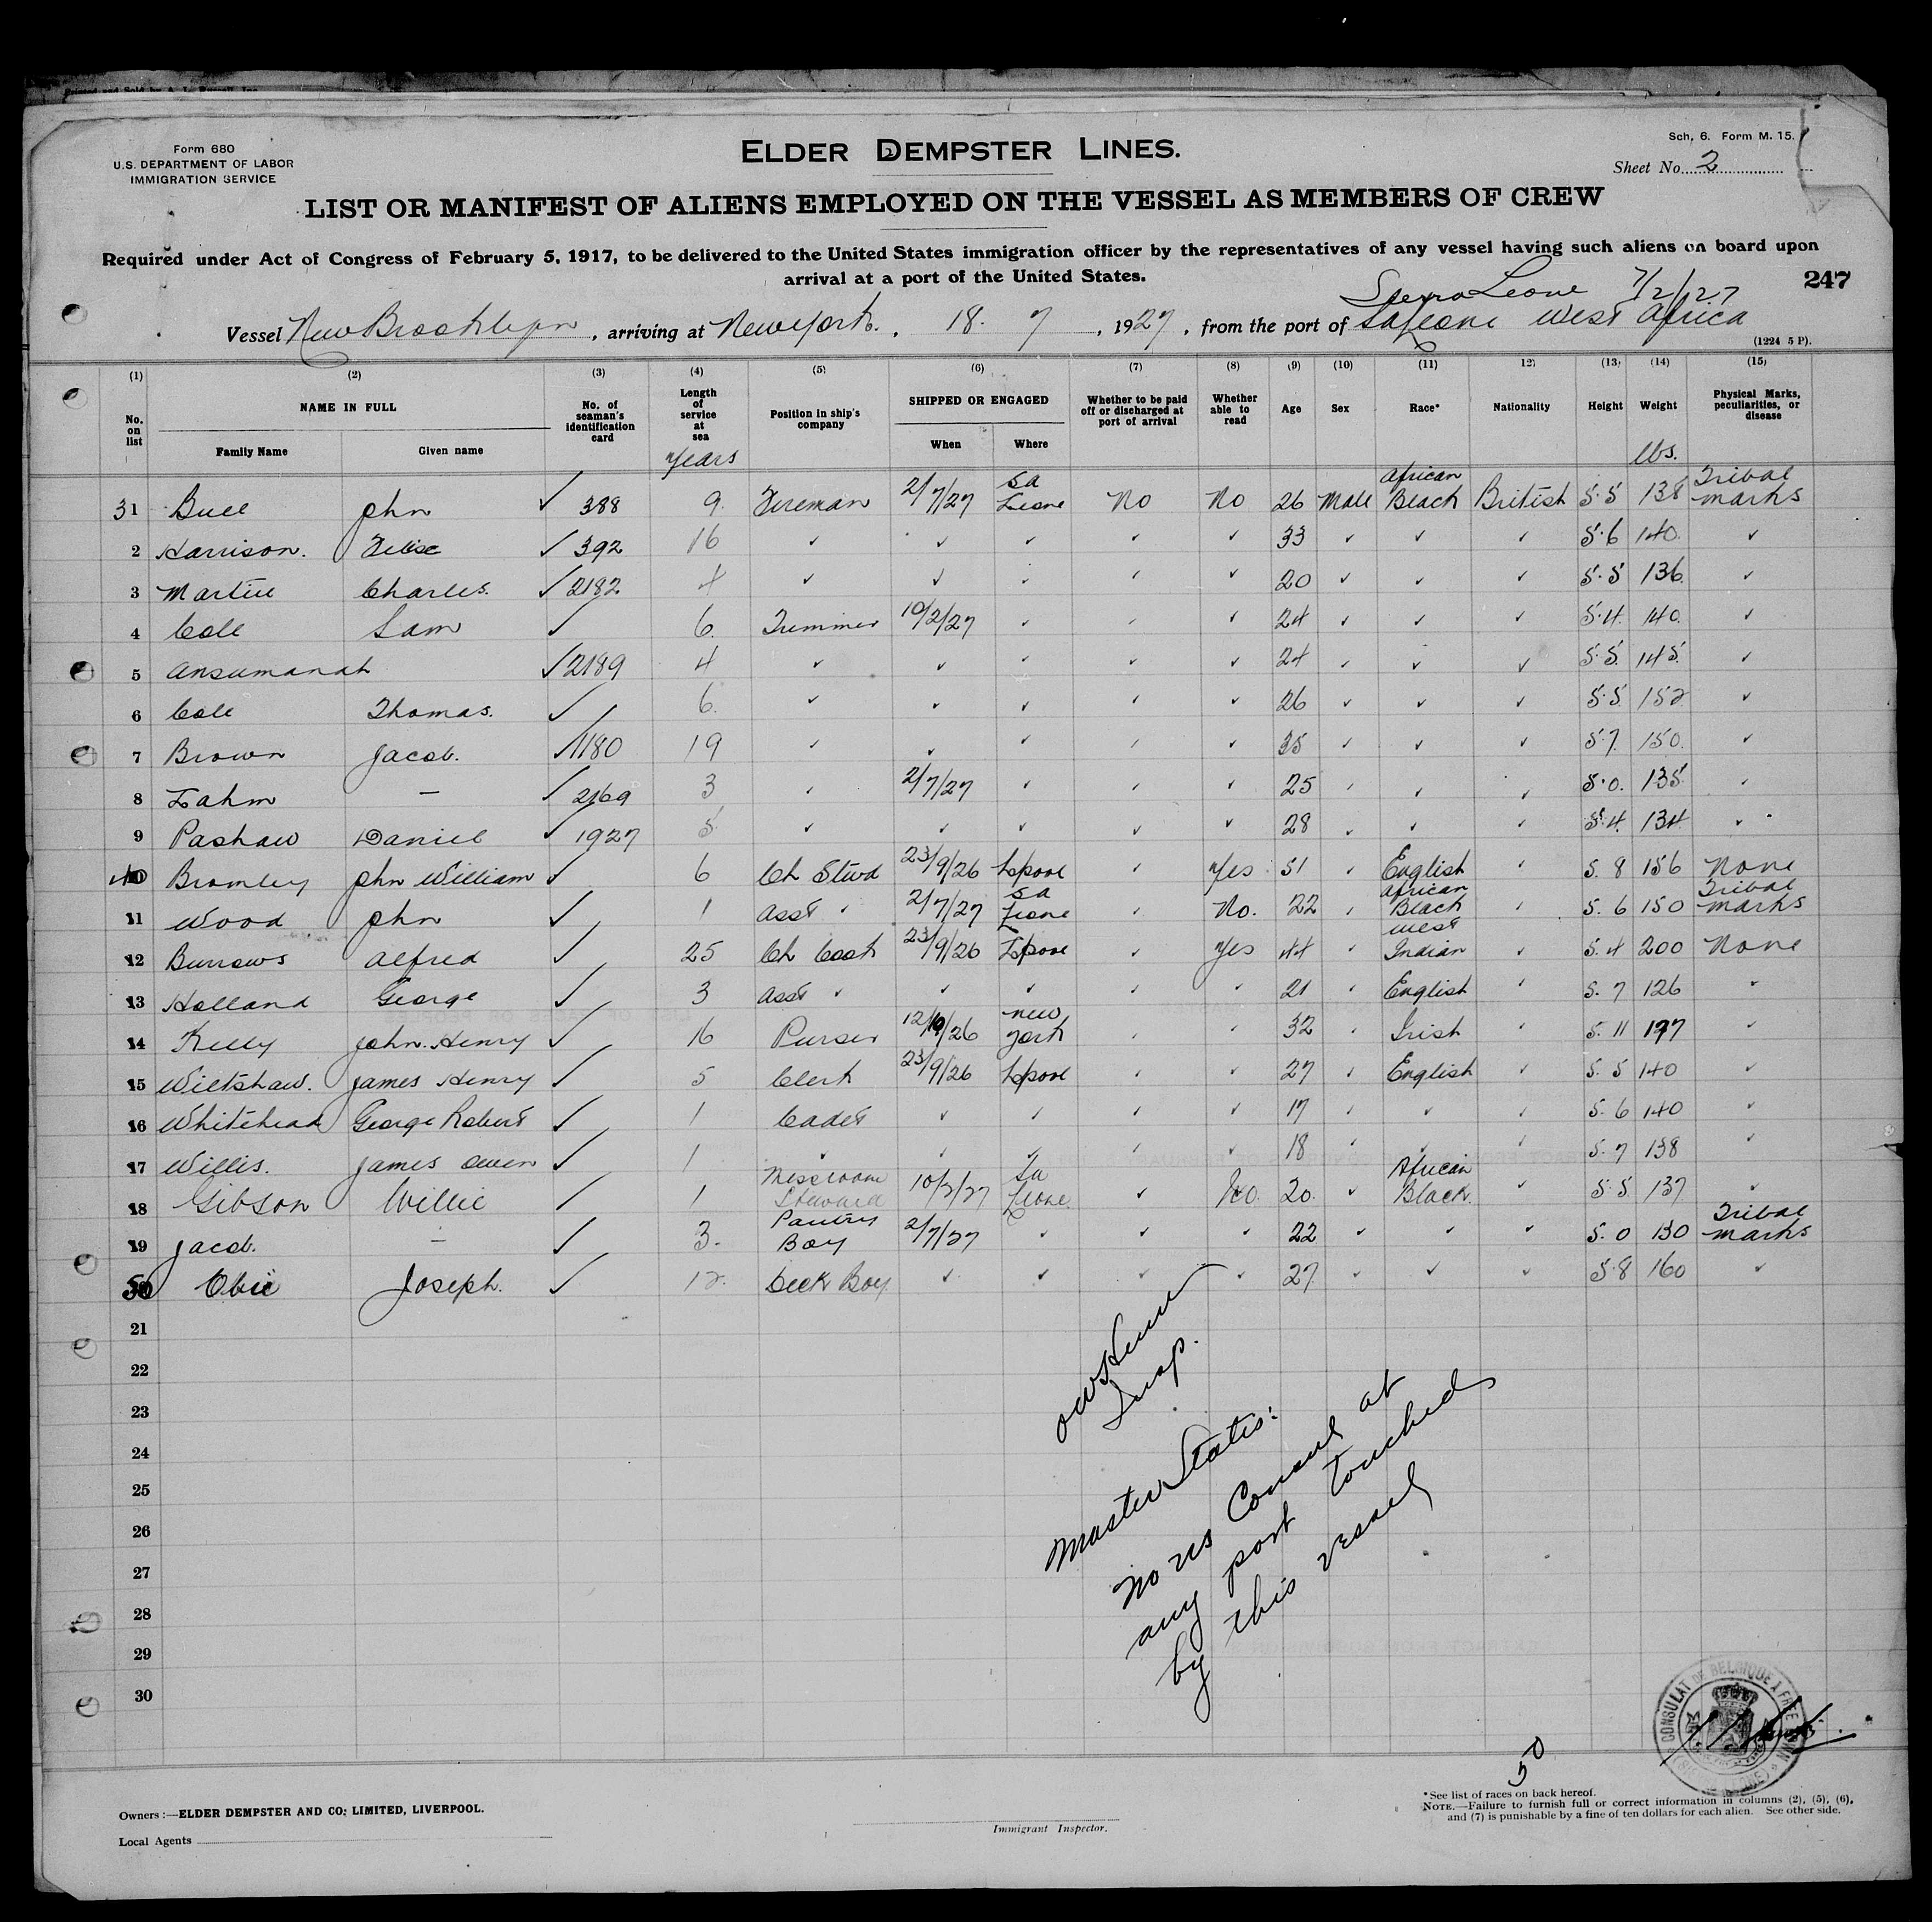 Form 680
U.S. DEPARTMENT OF LABOR
IMMIGRATION SERVICE
ELDER DEMPSTER LINES.
Sch. 6. Form M. 15.
Sheet No. 2
LIST OR MANIFEST OF ALIENS EMPLOYED ON THE VESSEL AS MEMBERS OF CREW
Required under Act of Congress of February 5, 1917, to be delivered to the United States immigration officer by the representatives of any vessel having such aliens on board upon
arrival at a port of the United States.
247
Sierra Leone 7/2/27
Vessel New Brooklyn, arriving at New York, 18. 7, 1927, from the port of Saleone West Africa
(1224 5 P).
(1) (2) (3) (4) (5) (6) (7) (8) (9) (10) (11) 12) (13) (14) (15)
No. on list NAME IN FULL Family Name Given name No. of seaman's identification card Length of service at sea Years Position in ship's company SHIPPED OR ENGAGED When Where Whether to be paid off or discharged at port of arrival Whether able to read Age Sex Race* Nationality Height Weight lbs. Physical Marks, peculiarities, or disease
31 Bull John ✓ 388 9. Fireman 2/7/27 Sa Leone No No 26 Male African Black British 5.5 138 Tribal marks
2 Harrison. ✓ 392 16 ✓ ✓ ✓ ✓ ✓ 33 ✓ ✓ ✓ 5.6 140. ✓
3 Martin Charles. ✓ 2182 4 ✓ ✓ ✓ ✓ ✓ 20 ✓ ✓ ✓ 5.5 136. ✓
4 Cole Sam ✓ 6. Trimmer 10/2/27 ✓ ✓ ✓ 24 ✓ ✓ ✓ 5.4. 140. ✓
5 Ansumanah ✓ 2189 4 ✓ ✓ ✓ ✓ ✓ 24 ✓ ✓ ✓ 5.5. 145. ✓
6 Cole Thomas. ✓ 6. ✓ ✓ ✓ ✓ ✓ 26 ✓ ✓ ✓ 5.5. 152 ✓
7 Brown Jacob. ✓ 1180 19 ✓ ✓ ✓ ✓ ✓ 35 ✓ ✓ ✓ 5.7. 150. ✓
8 – ✓ 2169 3 ✓ 2/7/27 ✓ ✓ ✓ 25 ✓ ✓ ✓ 5.0. 135. ✓
9 Pashaw Daniel ✓ 1927 5. ✓ ✓ ✓ ✓ ✓ 28 ✓ ✓ ✓ 5.4. 134. ✓
40 Bromley John William ✓ 6 Ch Stwd 23/9/26 Lpool ✓ Yes 51 ✓ English ✓ 5. 8 156 None
11 Wood John ✓ 1 Asst ✓ 2/7/27 Sa Leone ✓ No. 22 ✓ African Black ✓ 5. 6 150 Tribal marks
12 Burrows Alfred ✓ 25 Ch Cook 23/9/26 Lpool ✓ Yes 44 ✓ West Indian ✓ 5. 4 200 None
13 Holland George ✓ 3 Asst ✓ ✓ ✓ ✓ ✓ 21 ✓ English ✓ 5. 7 126 ✓
14 Kelly John. Henry ✓ 16 Purser New York ✓ ✓ 32 ✓ Irish ✓ 5. 11 ✓
15 Wiltshaw. James Henry ✓ 5 Clerk 23/9/26 Lpool ✓ ✓ 27 ✓ English ✓ 5. 5 140 ✓
16 Whitehead George Robert ✓ 1 Cadet ✓ ✓ ✓ ✓ 17 ✓ ✓ ✓ 5. 6 140 ✓
17 Willis. James Owen ✓ 1 ✓ ✓ ✓ ✓ ✓ 18 ✓ ✓ ✓ 5. 7 138 ✓
18 Gibson Willie ✓ 1 Messroom Steward 10/2/27 Sa Leone ✓ No. 20. ✓ African Black. ✓ 5.5. 137 ✓
19 Jacob. – ✓ 3. Pantry Boy 2/7/27 ✓ ✓ ✓ 22 ✓ ✓ ✓ 5. 0 130 Tribal marks
50 Obie Joseph. ✓ 12. Deck Boy. ✓ ✓ ✓ ✓ 27. ✓ ✓ ✓ 5.8 160 ✓
21
22
23
24
25
26
27
28
29
30
Insp.
Master States:
No US Consul at
any port touched
by this vessel
CONSULAT DE BELGIQUE A FREETOWN
50
Owners :—ELDER DEMPSTER AND CO: LIMITED, LIVERPOOL.
Local Agents
Immigrant Inspector.
*See list of races on back hereof.
NOTE.—Failure to furnish full or correct information in columns (2), (5), (6),
and (7) is punishable by a fine of ten dollars for each alien. See other side.